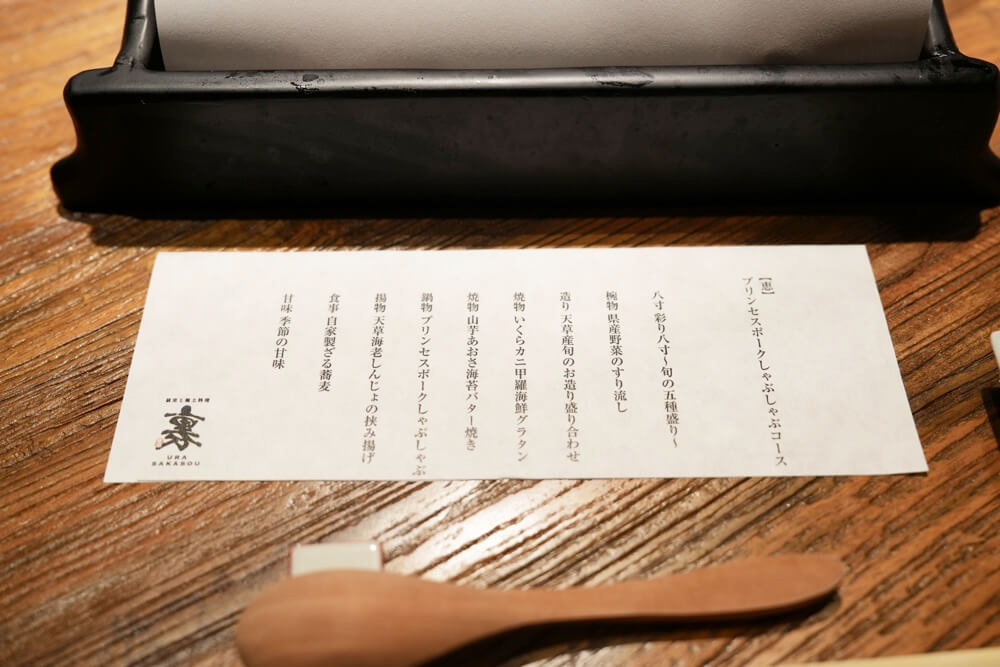 【恵】
プリンセスポークしゃぶしゃぶコース
八寸 彩り八寸～旬の五種盛り～
椀物 県産野菜のすり流し
造り 天草産旬のお造り盛り合わせ
焼物 いくらカニ甲羅海鮮グラタン
焼物 山芋あおさ海苔バター焼き
鍋物 プリンセスポークしゃぶしゃぶ
揚物 天草海老しんじょの挟み揚げ
食事 自家製ざる蕎麦
甘味 季節の甘味
裏
URA
SAKABOU